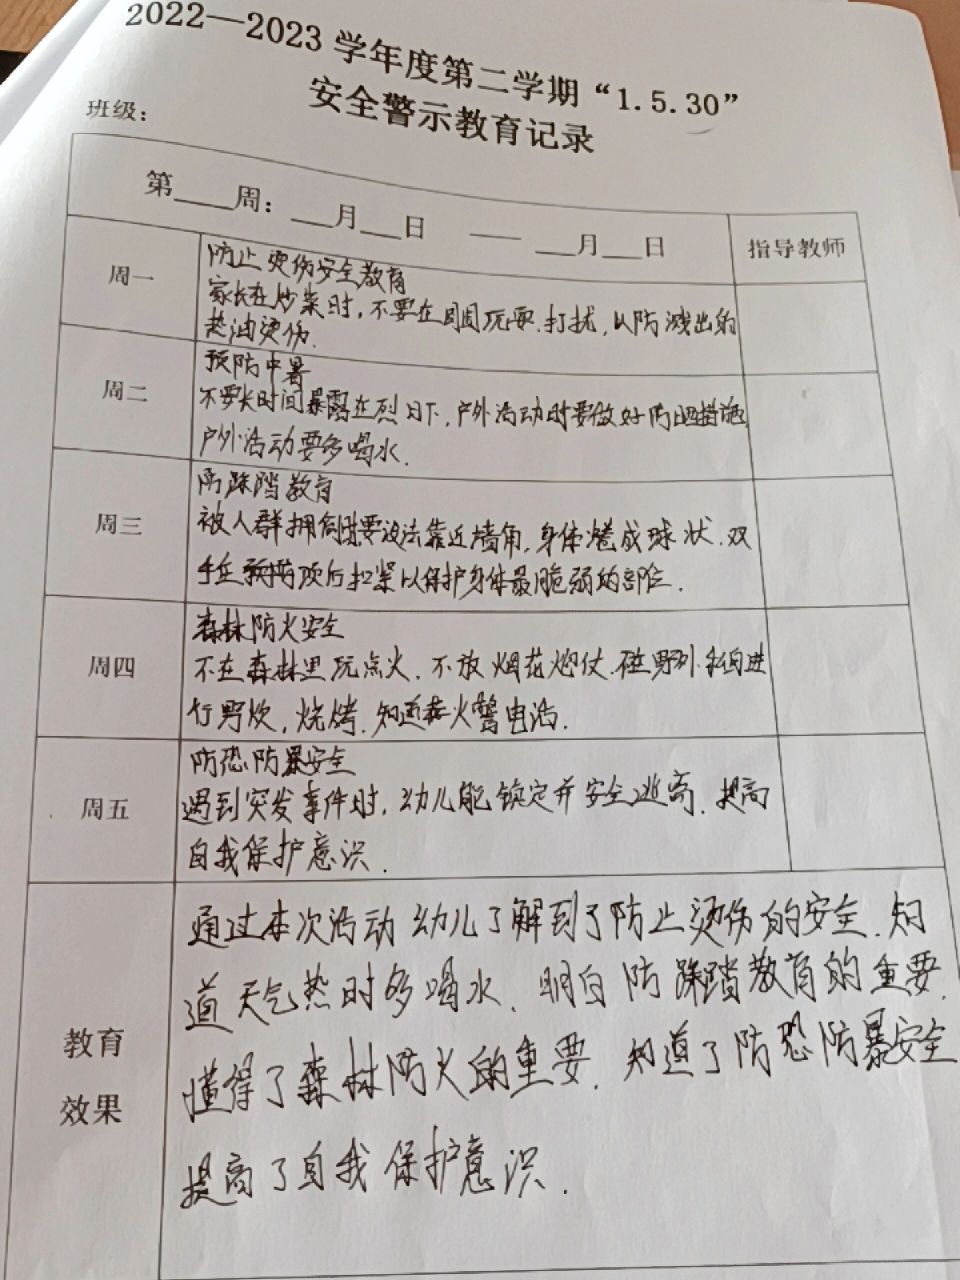 2022—2023 学年度第二学期“1.5.30”
安全警示教育记录
班级：
第____周： ___月___日 —— ___月___日
指导教师
周一
防止烫伤安全教育
家长在炒菜时,不要在周围玩耍.打扰,以防溅出的
热油烫伤.
周二
预防中暑
不要长时间暴露在烈日下,户外活动时要做好防晒措施
户外活动要多喝水.
周三
防踩踏教育
被人群拥倒时要设法靠近墙角,身体卷成球状.双
手在颈后扣紧以保护身体最脆弱的部位.
周四
森林防火安全
不在森林里玩点火.不放烟花炮仗.在野外私自进
行野炊,烧烤.知道火警电话.
周五
防恐防暴安全
遇到突发事件时,幼儿能镇定并安全逃离.提高
自我保护意识.
教育
效果
通过本次活动幼儿了解到了防止烫伤的安全.知
道天气热时多喝水.明白防踩踏教育的重要.
懂得了森林防火的重要.知道了防恐防暴安全
提高了自我保护意识.